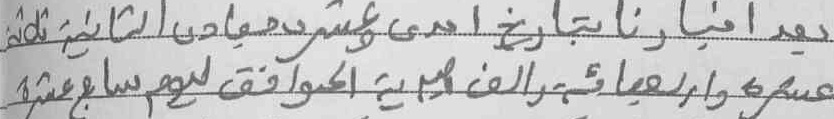 بعد اخبارنا بتاريخ احدى وعشرون جمادى الثانية ثلاثة
عشره واربعمائة والف هجرية الموافق ليوم سابع عشره